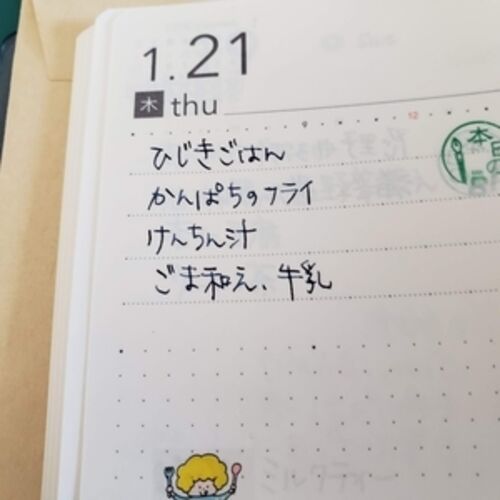 1.21
木 thu
9 12
本日の
ひじきごはん
かんぱちのフライ
けんちん汁
ごま和え、牛乳
ミルクティー